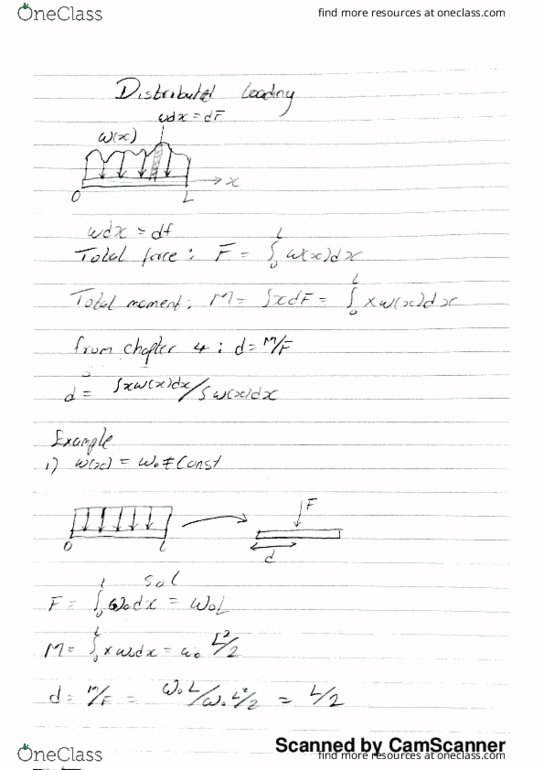 OneClass
find more resources at oneclass.com
Distributed Loading
wdx = dF
w(x)
0 L x
wdx = df
Total force : F = ∫₀ᴸ w(x)dx
Total moment : M = ∫xdF = ∫₀ᴸ xw(x)dx
from chapter 4 : d = M/F
d = ∫xw(x)dx/∫w(x)dx
Example
1) w(x) = w₀ ≠ Const
F
0 L
d
Sol
F = ∫₀ᴸ w₀dx = w₀L
M = ∫₀ᴸ xwdx = w₀ L²/2
d = M/F = w₀L/w₀L²/2 = L/2
Scanned by CamScanner
OneClass
find more resources at oneclass.com